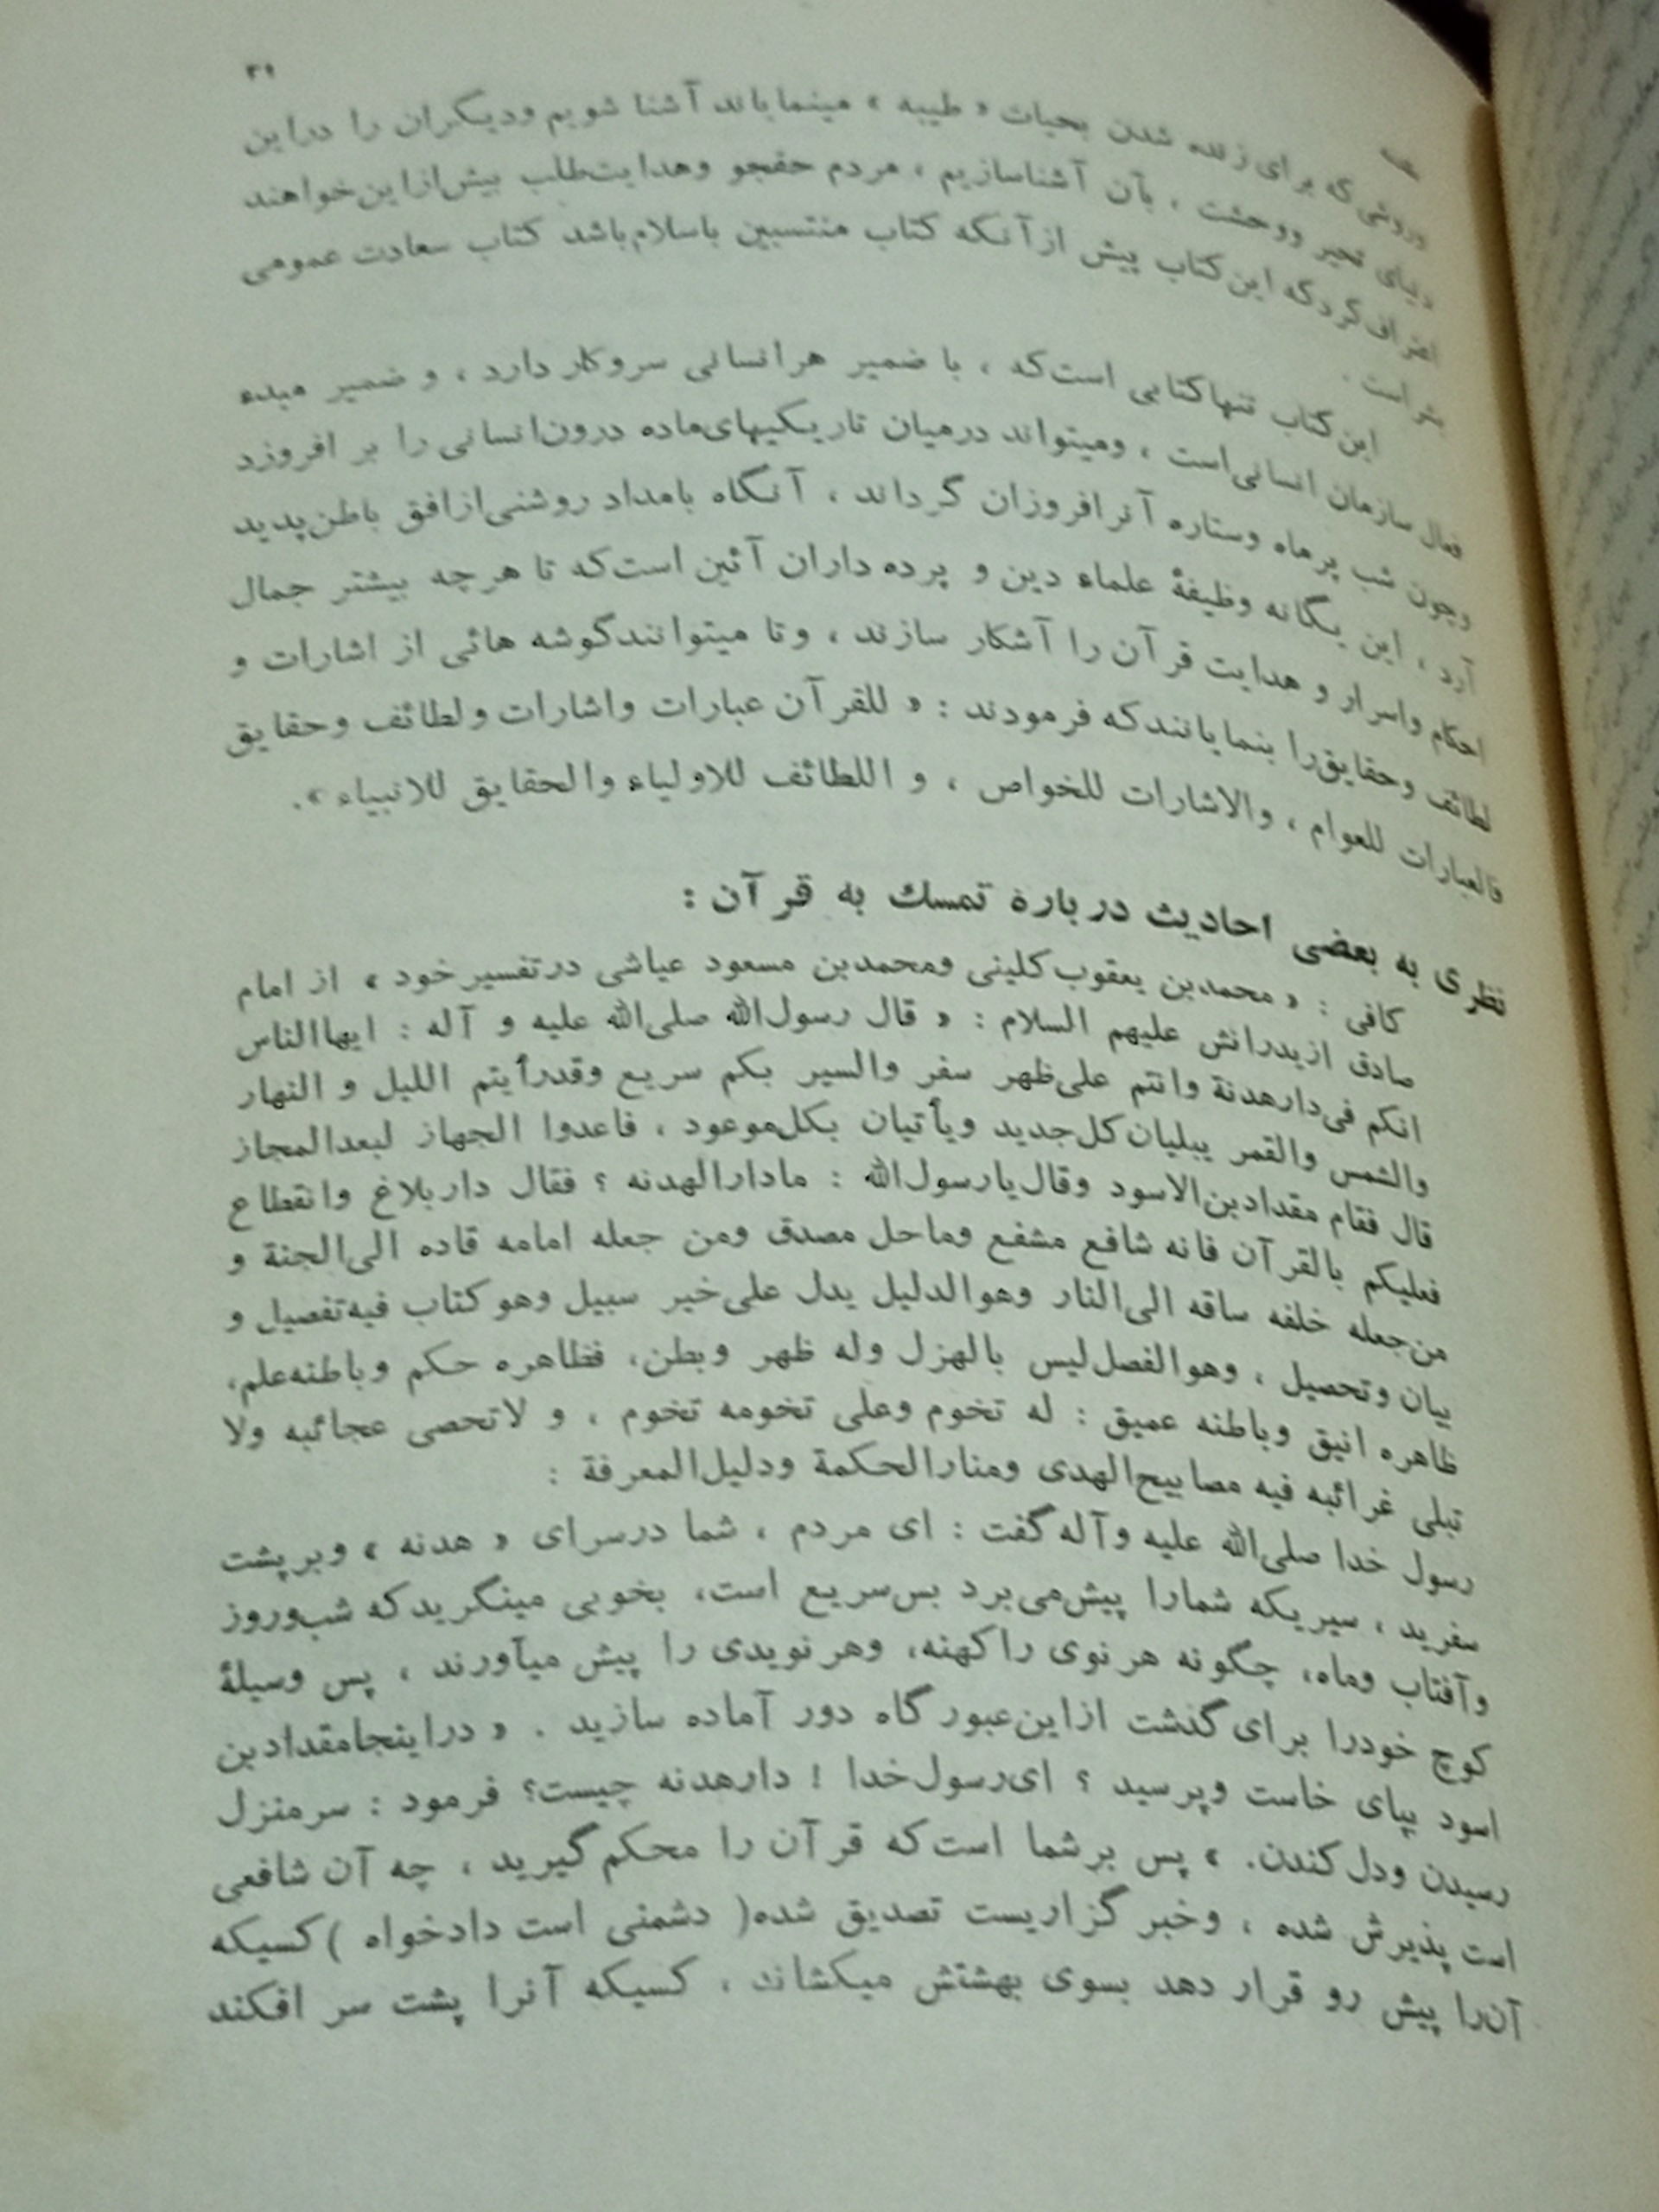 ۳۹
مقدمه
وروشی که برای زنده شدن بحیات « طیبه » مینمایاند آشنا شویم ودیگران را دراین
دنیای تحیر ووحشت ، بآن آشناسازیم ، مردم حقجو وهدایت‌طلب بیش‌ازاین‌خواهند
اعتراف‌کردکه این‌کتاب پیش ازآنکه کتاب منتسبین باسلام‌باشد کتاب سعادت عمومی
بشراست .
این‌کتاب تنهاکتابی است‌که ، با ضمیر هرانسانی سروکار دارد ، و ضمیر مبدء
فعال سازمان انسانی‌است ، ومیتواند درمیان تاریکیهای‌ماده درون‌انسانی را بر افروزد
وچون شب پرماه وستاره آنرافروزان گرداند ، آنگاه بامداد روشنی‌ازافق باطن‌پدید
آرد ، این یگانه وظیفهٔ علماء دین و پرده داران آئین است‌که تا هرچه بیشتر جمال
احکام واسرار و هدایت قرآن را آشکار سازند ، وتا میتوانندگوشه هائی از اشارات و
لطائف وحقایق‌را بنمایانندکه فرمودند : « للقرآن عبارات واشارات ولطائف وحقایق
فالعبارات للعوام ، والاشارات للخواص ، و اللطائف للاولیاء والحقایق للانبیاء ».
نظری به بعضی احادیث دربارهٔ تمسك به قرآن :
کافی : « محمدبن یعقوب‌کلینی ومحمدبن مسعود عیاشی درتفسیرخود » از امام
صادق ازپدرانش علیهم السلام : « قال رسول‌الله صلی‌الله علیه و آله : ایهاالناس
انکم فی‌دارهدنة وانتم علی‌ظهر سفر والسیر بکم سریع وقدرأیتم اللیل و النهار
والشمس والقمر یبلیان‌کل‌جدید ویأتیان بکل‌موعود ، فاعدوا الجهاز لبعدالمجاز
قال فقام مقدادبن‌الاسود وقال‌یارسول‌الله : مادارالهدنه ؟ فقال داربلاغ وانقطاع
فعلیکم بالقرآن فانه شافع مشفع وماحل مصدق ومن جعله امامه قاده الی‌الجنة و
من‌جعله خلفه ساقه الی‌النار وهوالدلیل یدل علی‌خیر سبیل وهوکتاب فیه‌تفصیل و
بیان وتحصیل ، وهوالفصل‌لیس بالهزل وله ظهر وبطن، فظاهره حکم وباطنه‌علم،
ظاهره انیق وباطنه عمیق : له تخوم وعلی تخومه تخوم ، و لاتحصی عجائبه ولا
تبلی غرائبه فیه مصابیح‌الهدی ومنارالحکمة ودلیل‌المعرفة :
رسول خدا صلی‌الله علیه وآله‌گفت : ای مردم ، شما درسرای « هدنه » وبرپشت
سفرید ، سیریکه شمارا پیش‌می‌برد بس‌سریع است، بخوبی مینگریدکه شب‌وروز
وآفتاب وماه، چگونه هرنوی راکهنه، وهرنویدی را پیش میآورند ، پس وسیلهٔ
کوچ خودرا برای‌گذشت ازاین‌عبورگاه دور آماده سازید . « دراینجامقدادبن
اسود بپای خاست وپرسید ؟ ای‌رسول‌خدا ! دارهدنه چیست؟ فرمود : سرمنزل
رسیدن ودل‌کندن. » پس برشما است‌که قرآن را محکم‌گیرید ، چه آن شافعی
است پذیرش شده ، وخبر گزاریست تصدیق شده( دشمنی است دادخواه )کسیکه
آن‌را پیش رو قرار دهد بسوی بهشتش میکشاند ، کسیکه آنرا پشت سر افکند